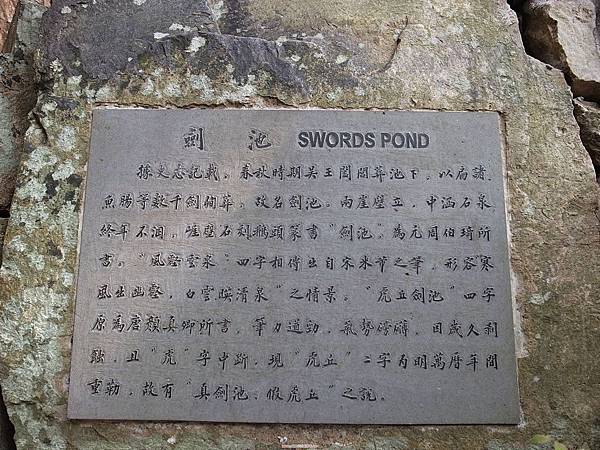 劍池 SWORDS POND
據史志記載。春秋時期吳王闔閭葬池下。以扁諸、
魚腸等數千劍殉葬。故名劍池。兩崖壁立，中涵石泉
終年不涸。崖壁石刻鵝頭篆書“劍池”。為元周伯琦所
書。“風壑雲泉”四字相傳出自宋米芾之筆，形容“寒
風生幽壑，白雲映清泉”之情景。“虎丘劍池”四字
原為唐顏真卿所書。筆力遒勁，氣勢磅礴。因歲久剝
蝕，且“虎”字中斷，現“虎丘”二字为明萬曆年間
重勒，故有“真劍池，假虎丘”之說。